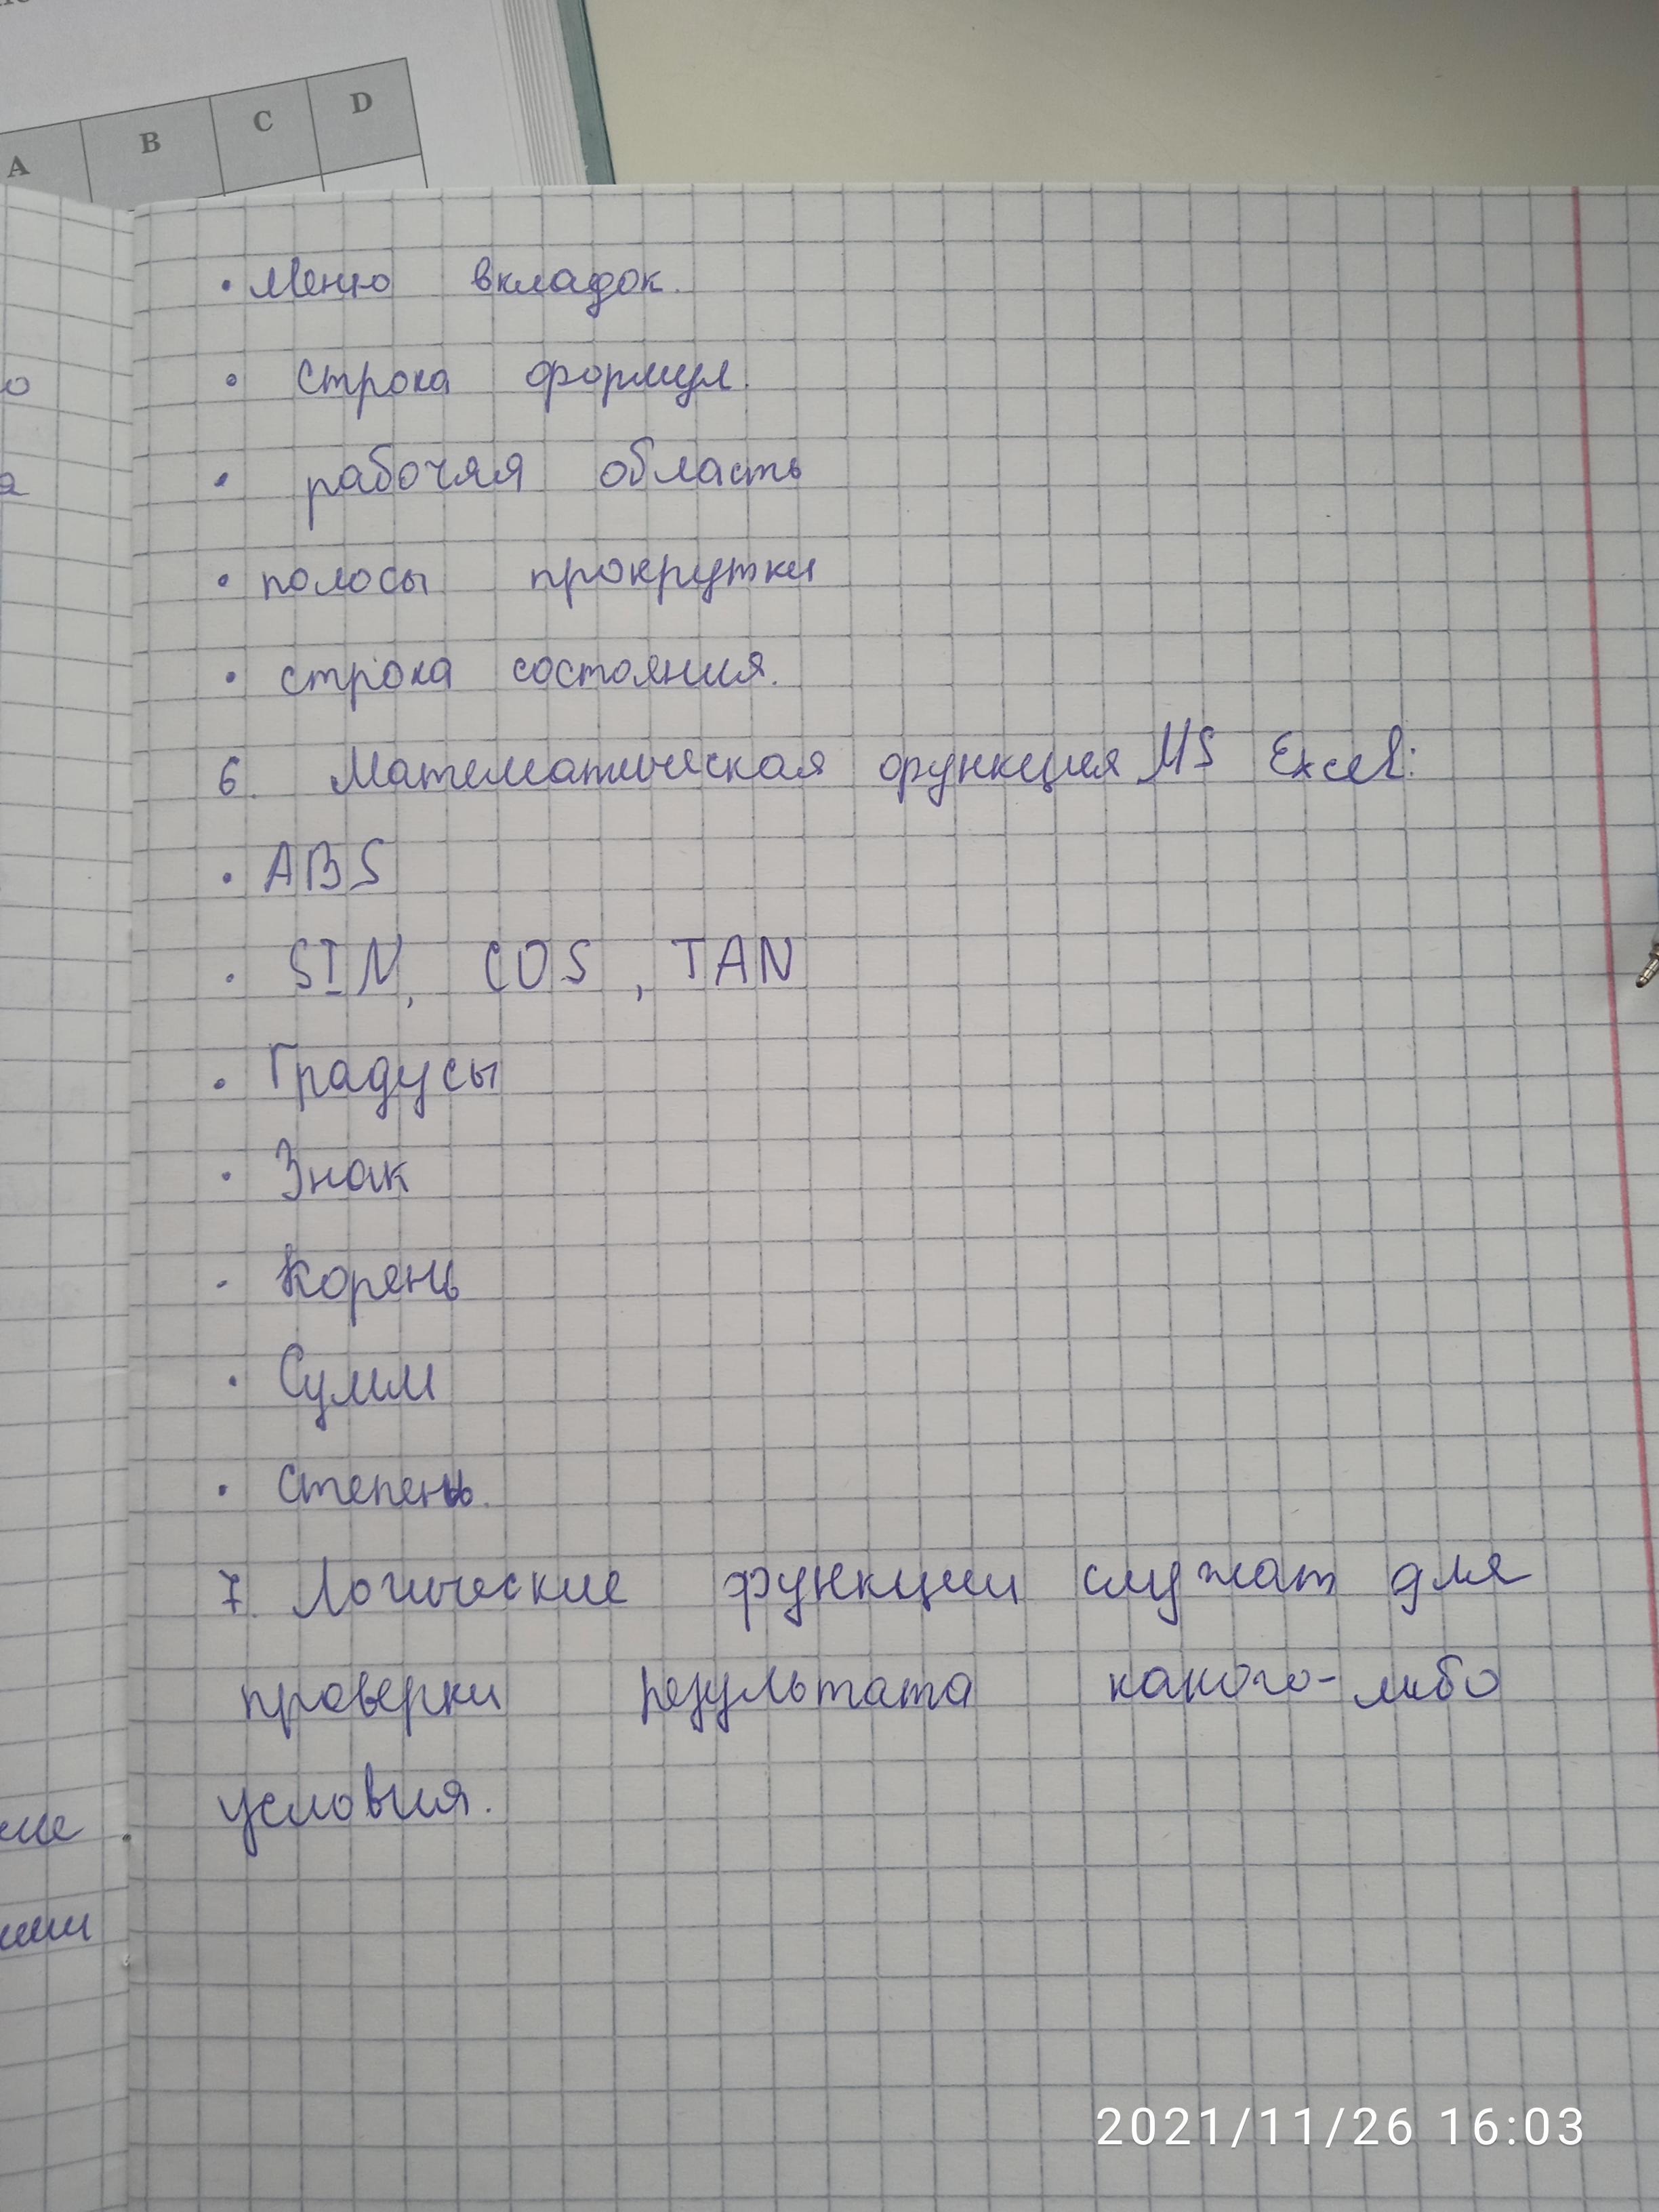 A B C D
• Меню вкладок.
• строка формул.
• рабочая область
• полосы прокрутки
• строка состояния.
6. Математическая функция MS Excel:
• ABS
• SIN, COS, TAN
• Градусы
• Знак
• Корень
• Сумм
• Степень.
7. Логические функции служат для
проверки результата какого-либо
условия.
2021/11/26 16:03